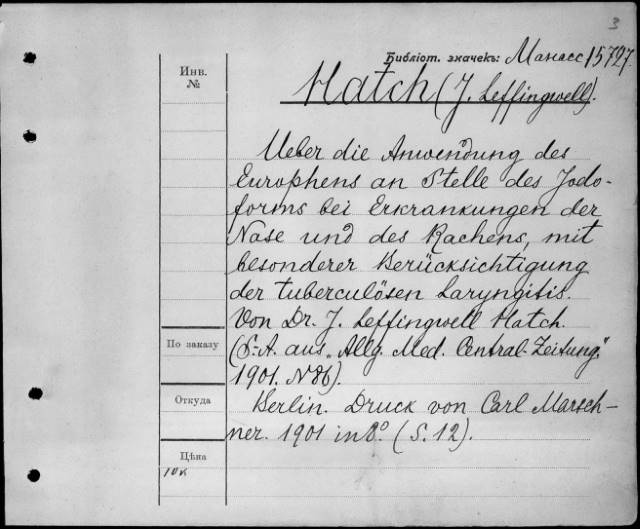 3
Библіот. значекъ: Манасс 15727.
Инв.
№
Hatch (J. Leffingwell).
Ueber die Anwendung des
Europhens an Stelle des Jodo-
forms bei Erkrankungen der
Nase und des Rachens, mit
besonderer Berücksichtigung
der tuberculösen Laryngitis.
Von Dr. J. Leffingwell Hatch.
По заказу
(S.-A. aus „Allg. Med. Central-Zeitung."
1901. N 86).
Откуда
Berlin. Druck von Carl Marsch-
ner. 1901 in 8º. (S. 12).
Цѣна
10 к